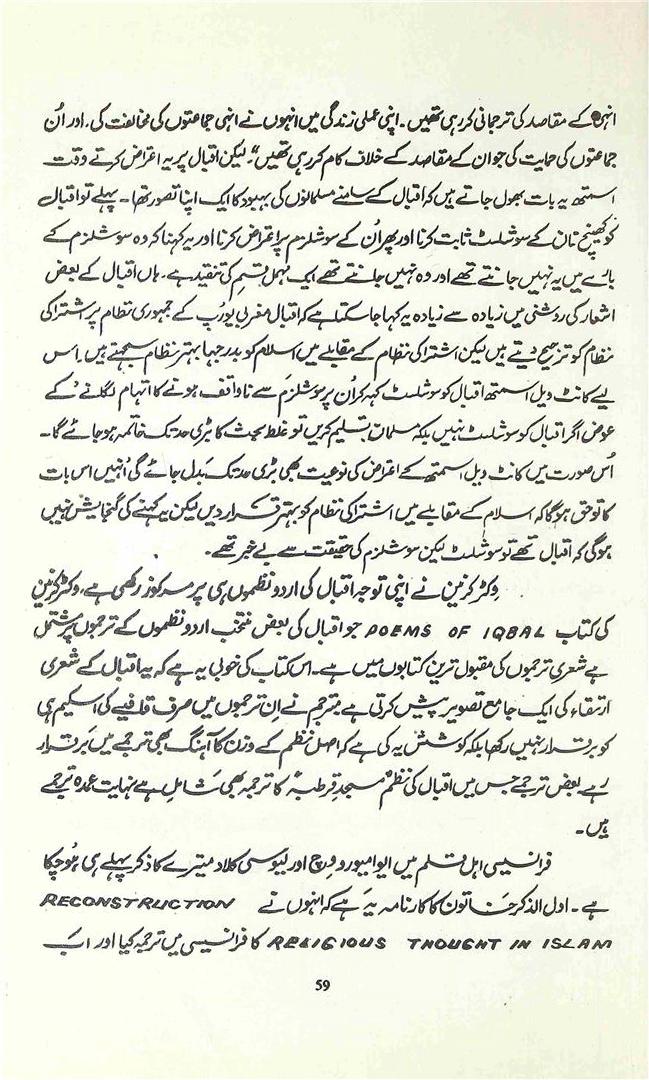 انہی کے مقاصد کی ترجمانی کر رہی تھیں۔ اپنی عملی زندگی میں انہوں نے انہی جماعتوں کی مخالفت کی، اور اُن
جماعتوں کی حمایت کی جو ان کے مقاصد کے خلاف کام کر رہی تھیں"۔ لیکن اقبال پر یہ اعتراض کرتے وقت
اسمتھ یہ بات بھول جاتے ہیں کہ اقبال کے سامنے مسلمانوں کی بہبود کا ایک اپنا تصور تھا۔ پہلے تو اقبال
کو کھینچ تان کے سوشلسٹ ثابت کرنا اور پھر اُن کے سوشلزم پر اعتراض کرنا اور یہ کہنا کہ وہ سوشلزم کے
بارے میں یہ نہیں جانتے تھے اور وہ نہیں جانتے تھے ایک مہمل قسم کی تنقید ہے۔ ہاں اقبال کے بعض
اشعار کی روشنی میں زیادہ سے زیادہ یہ کہا جا سکتا ہے کہ اقبال مغربی یورپ کے جمہوری نظام پر اشتراکی
نظام کو ترجیح دیتے ہیں لیکن اشتراکی نظام کے مقابلے میں اسلام کو بدرجہا بہتر نظام سمجھتے ہیں۔ اس
لیے کانٹ ویل اسمتھ اقبال کو سوشلسٹ کہہ کر اُن پر سوشلزم سے ناواقف ہونے کا اتہام لگانے کے
عوض اگر اقبال کو سوشلسٹ نہیں بلکہ مسلمان تسلیم کریں تو غلط مبحث کا بڑی حد تک خاتمہ ہو جائے گا۔
اُس صورت میں کانٹ ویل اسمتھ کے اعتراض کی نوعیت بھی بڑی حد تک بدل جائے گی اُنہیں اس بات
کا تو حق ہوگا کہ اسلام کے مقابلے میں اشتراکی نظام کو بہتر قرار دیں لیکن یہ کہنے کی گنجایش نہیں
ہوگی کہ اقبال تھے تو سوشلسٹ لیکن سوشلزم کی حقیقت سے بے خبر تھے۔
وکٹر کرنین نے اپنی توجہ اقبال کی اردو نظموں ہی پر مرکوز رکھی ہے، وکٹر کرنین
کی کتاب POEMS OF IQBAL جو اقبال کی بعض منتخب اردو نظموں کے ترجموں پر مشتمل
ہے شعری ترجموں کی مقبول ترین کتابوں میں ہے۔ اس کتاب کی خوبی یہ ہے کہ یہ اقبال کے شعری
ارتقاء کی ایک جامع تصویر پیش کرتی ہے۔ مترجم نے اِن ترجموں میں صرف قافیے کی اسکیم ہی
کو برقرار نہیں رکھا بلکہ کوشش یہ کی ہے کہ اصل نظم کے وزن کا آہنگ بھی ترجمے میں برقرار
رہے بعض ترجمے جس میں اقبال کی نظم "مسجد قرطبہ" کا ترجمہ بھی شامل ہے نہایت عمدہ ترجمے
ہیں۔
فرانسیسی اہل قلم میں ایوا میورو وِچ اور لیوسی کلاد میترے کا ذکر پہلے ہی ہو چکا
ہے۔ اول الذکر خاتون کا کارنامہ یہ ہے کہ انہوں نے RECONSTRUCTION
RELIGIOUS THOUGHT IN ISLAM کا فرانسیسی میں ترجمہ کیا اور اب
59